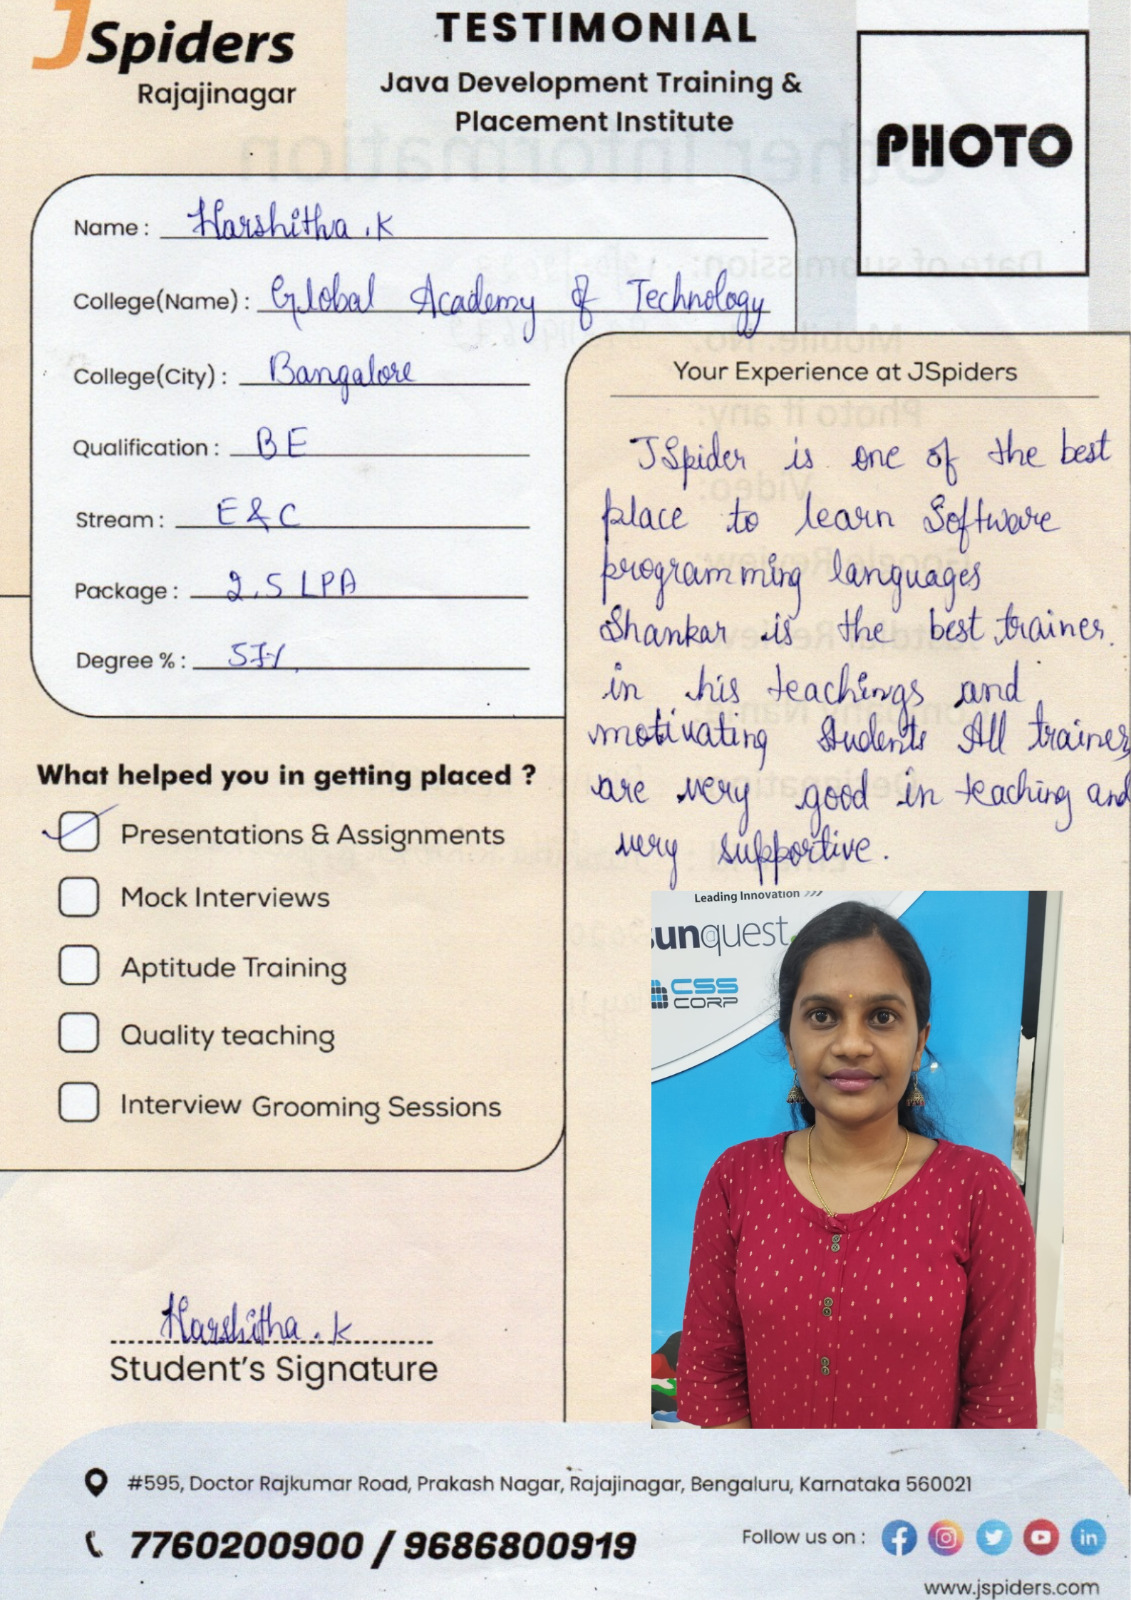 JSpiders
Rajajinagar
TESTIMONIAL
Java Development Training &
Placement Institute
PHOTO
Name : Harshitha .K
College(Name) : Global Academy of Technology
College(City) : Bangalore
Qualification : BE
Stream : E&C
Package : 2.5 LPA
Degree % :
Your Experience at JSpiders
JSpider is one of the best
place to learn Software
programming languages
Shankar is the best trainer.
in his teachings and
motivating students All trainers
are very good in teaching and
very supportive.
What helped you in getting placed ?
Presentations & Assignments
Mock Interviews
Aptitude Training
Quality teaching
Interview Grooming Sessions
Leading Innovation >>>
unquest
CSS
CORP
Harshitha . k
Student's Signature
#595, Doctor Rajkumar Road, Prakash Nagar, Rajajinagar, Bengaluru, Karnataka 560021
7760200900 / 9686800919
Follow us on :
www.jspiders.com